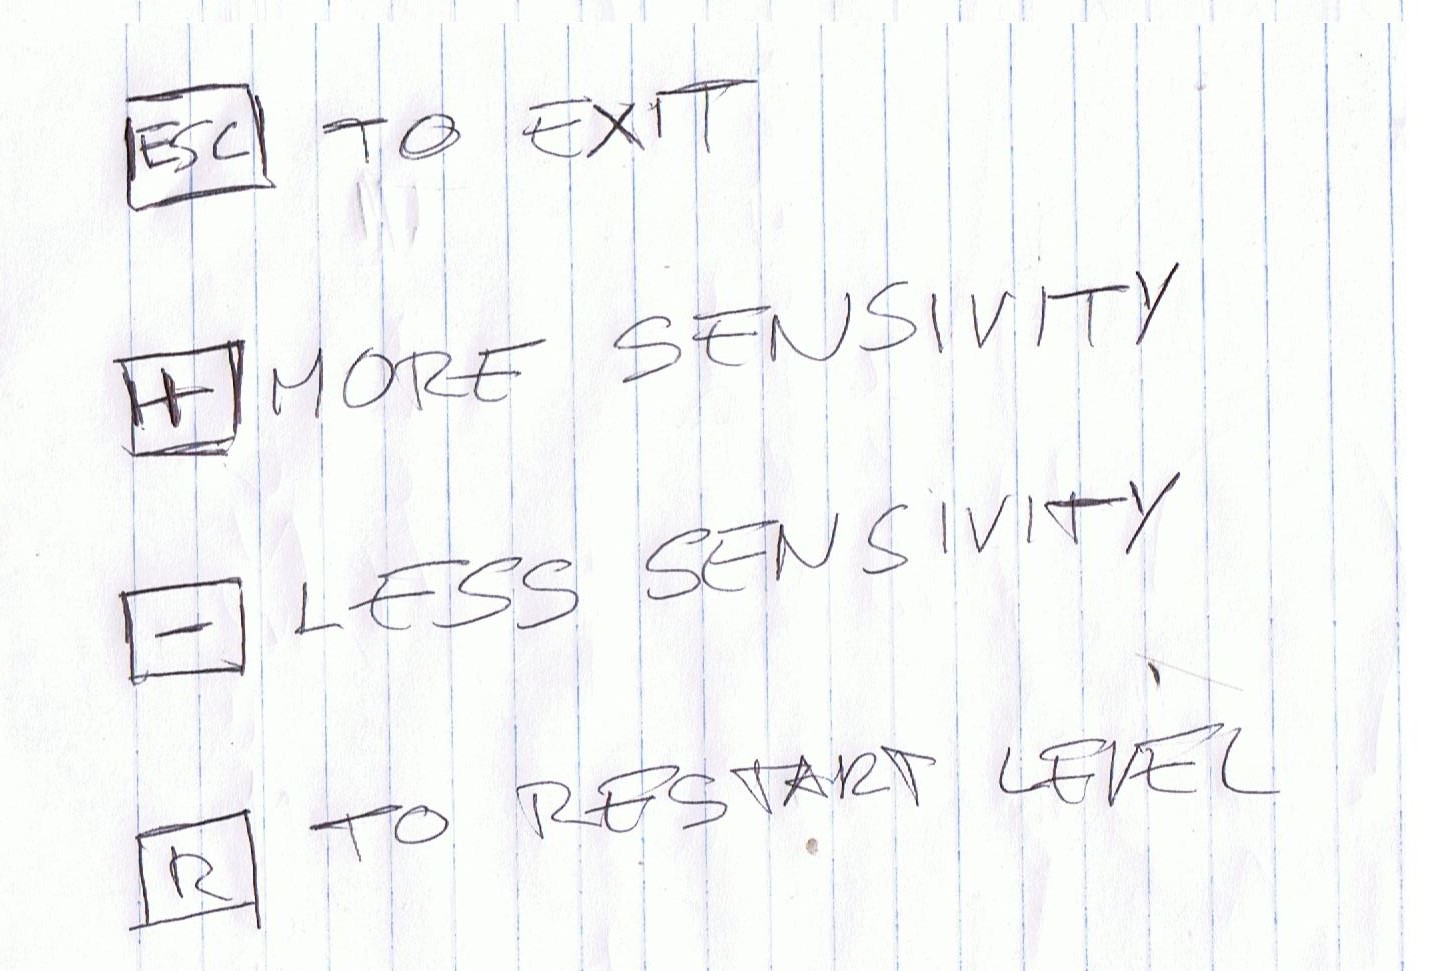 ESC TO EXIT
+ MORE SENSIVITY
- LESS SENSIVITY
R TO RESTART LEVEL